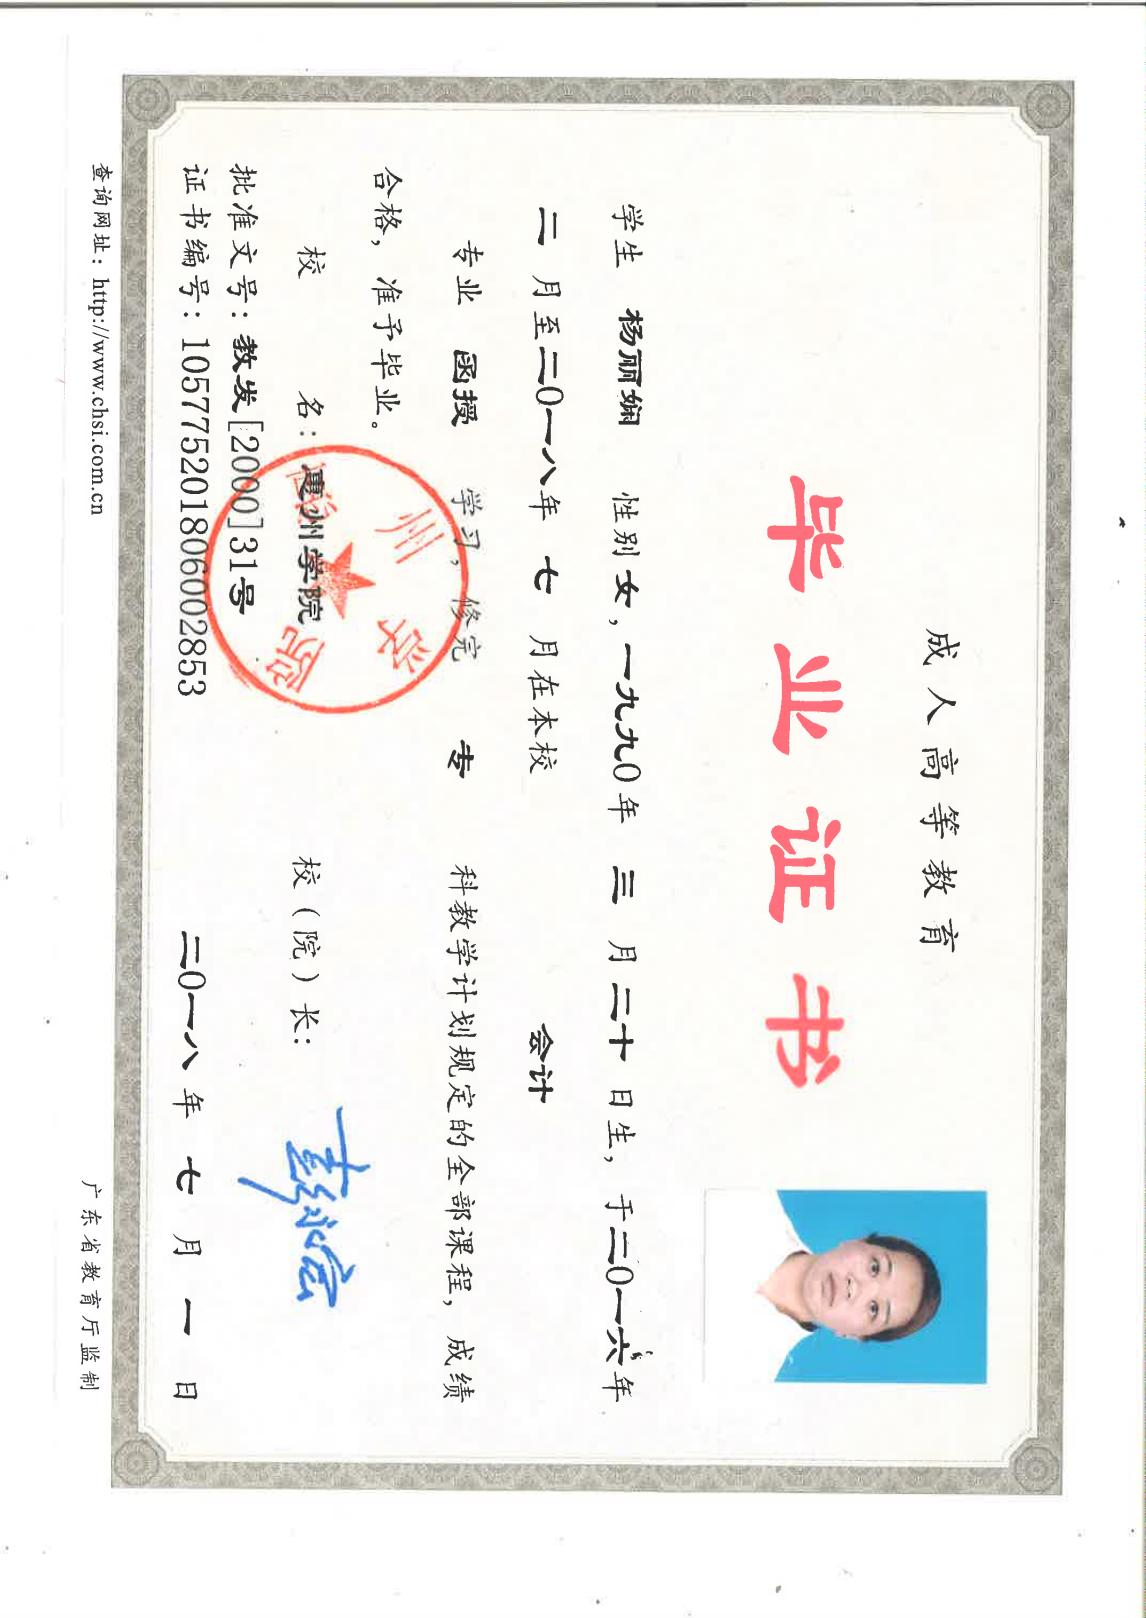 成人高等教育
毕业证书
学生 杨丽娴 性别 女，一九九〇年 三 月 二十 日生，于二〇一六年
二 月至二〇一八年 七 月在本校 会计
专业 函授 学习，修完 专 科教学计划规定的全部课程，成绩
合格，准予毕业。
校 名：惠州学院 校（院）长：
惠州学院
批准文号：教发[2000]31号
证书编号：105775201806002853 二〇一八 年 七 月 一 日
查询网址：http://www.chsi.com.cn 广东省教育厅监制